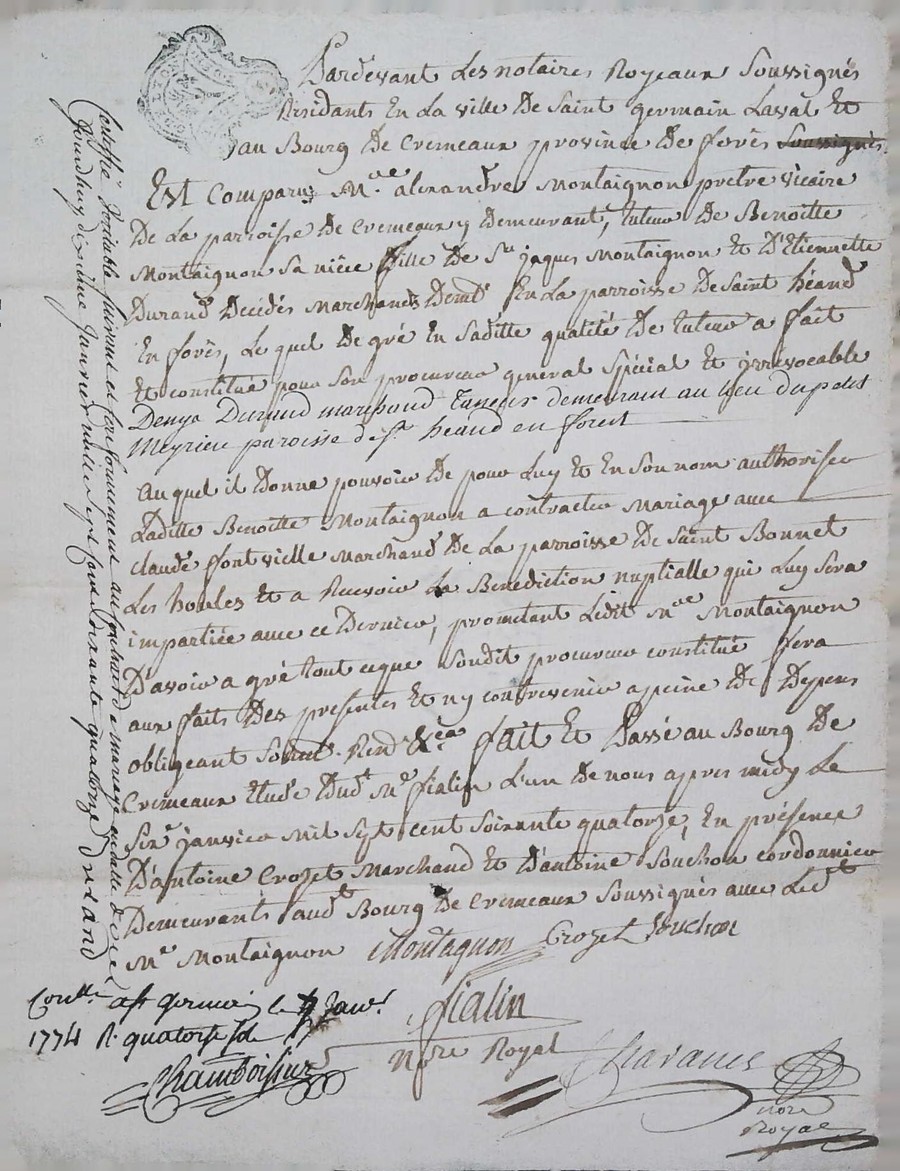 Pardevant Les notaires Royeaux Soussignés
Résidants En La ville De Saint germain Laval Et
au Bourg De Cremeaux province De forès Soussignés
Est Comparu Mre alexandre Montaignon pretre vicaire
De La parroisse De Cremeaux y Demeurant, tuteur De Benoitte
Montaignon Sa niéce fille De Sr jaques Montaignon Et D'Etiennette
Durand Decédés Marchands Demts En La parroisse De Saint héand
En forès, Le quel De gré En Saditte qualité De tuteur a fait
Et constitué pour Son procureur general Spécial Et irrévocable
Denys Durand marchand taneur demeurant au lieu du
Meyrieu paroisse de st heand en forest
auquel il Donne pouvoir De pour Luy Et En Son nom authoriser
Laditte Benoitte Montaignon a contracter Mariage avec
claude fontvielle Marchand De La parroisse De Saint Bonnet
Les houles Et a Recevoir La Bénédiction nuptialle qui Luy Sera
impartiée avec ce Dernier, promettant Ledit Mre Montaignon
D'avoir a gré tout ceque Sondit procureur constitué fera
aux faits Des présentes Et ny contrevenir apeine De Depens
obligeant Rent &ca fait Et Passé au Bourg De
Cremeaux Etude Dudt Me fialin L'un De nous apres midy Le
Janvier Mil Sept Cent Soixante quatorze, En présence
D'antoine Crozet Marchand Et D'antoine Souchon cordonnier
Demeurants audt Bourg De Cremeaux Soussignés avec Ledt
Mre Montaignon Montagnon Crozet Souchon
fialin
Nore Royal
Chavanes
nore
Royal
Conllé a st germain le 7 Janr
1774 R. quatorse sols
Certiffié Véritable Suivant et Conformement au contrard e mariage
Jourdhuy dixhuc Janvier mille sept sans soixante quatorze Durand